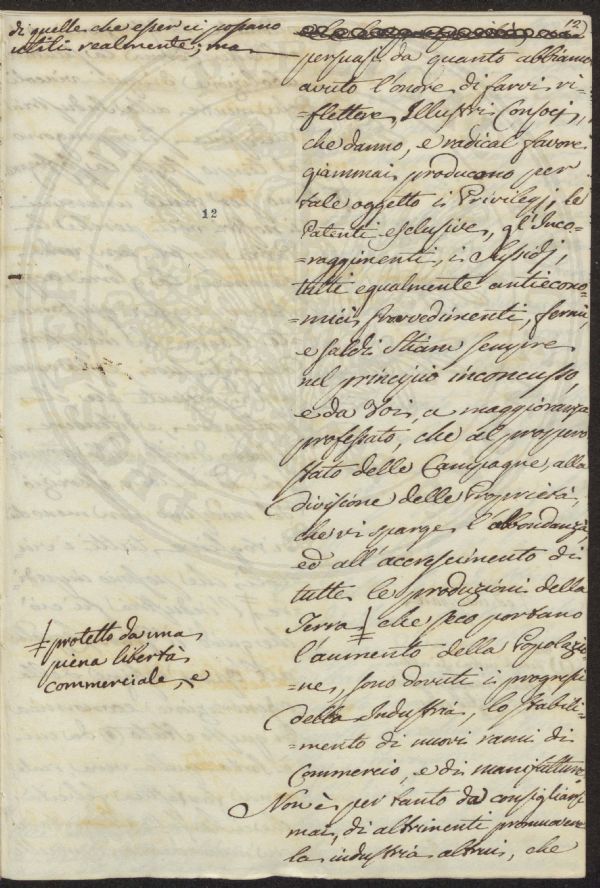 12
di quelle che esser ci possano
utili realmente; ma
persuasi da quanto abbiamo
avuto l'onore di farvi ri-
=flettere, Illustri Consocj,
che danno, e radical favore
giammai producono per
tale oggetto i Privilegj, le
Patenti esclusive, gl'Inco-
=raggimenti, i Sussidj,
tutti egualmente antiecono-
=mici provvedimenti, fermi,
e saldi stiam sempre
nel principio inconcusso,
e da Voi, a maggioranza
professato, che al prospero
stato delle Campagne, alla
divisione delle Proprietà,
che vi sparge l'abbondanza,
ed all'accrescimento di
tutte le produzioni della
Terra ‡ che seco portano
l'aumento della Popolazio-
=ne, sono dovuti i progressi
della Industria, lo stabili-
=mento di nuovi rami di
Commercio, e di manifatture.
Non è per tanto da consigliarsi
mai, di altrimenti promuovere
la industria altrui, che
12
‡ protetto da una
piena libertà
commerciale, e